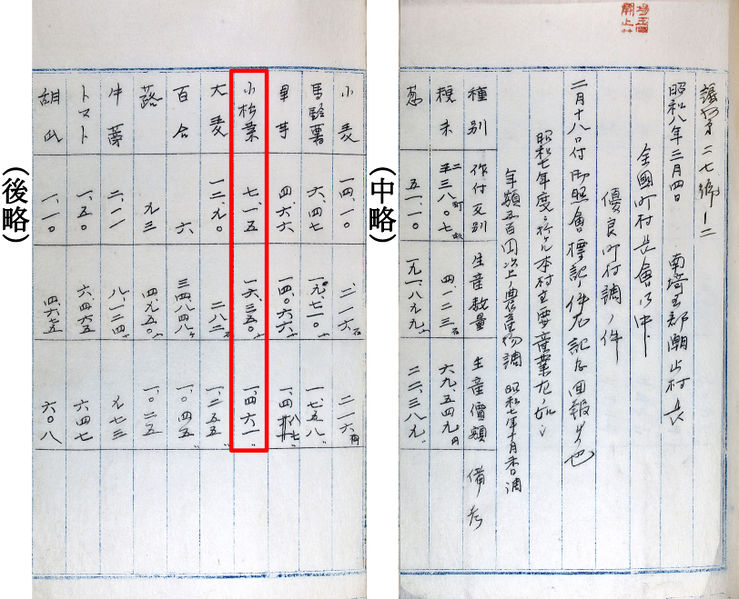 議第二七號ノ二
昭和八年三月四日　南埼玉郡潮止村長
全國町村長會御中
優良町村調ノ件
二月十八日付御照會標記ノ件左記ノ通回報候也
昭和七年度ニ於ケル本村主要産業左ノ如シ
年額五百円以上ノ農産物調　昭和七年十月末日調
種別　作付反別　生産数量　生産價額　備考
粳米　二三八〇七　四、一二三石　六九、五四九円
葱　五一、一〇　一九一、八九九　二二、三八九
(中略)
小麦　一四、一〇　二一六石　二一六円
馬鈴薯　六、四七　一九、七一〇　一、七五八
里芋　四、六六　一四、〇六六　一、四八七
小松菜　七、一五　一六、三五〇　一、四六一
大麦　一二、九〇　二八二石　一、二五五
百合　六　三四八四八　一、〇四五
蕗　九三　四、九五〇　一、〇二五
牛蒡　二、一一　八、一二四　九七三
トマト　一、五〇　六、四六五　六四七
胡瓜　一、一〇　四、六七五　六〇八
(後略)